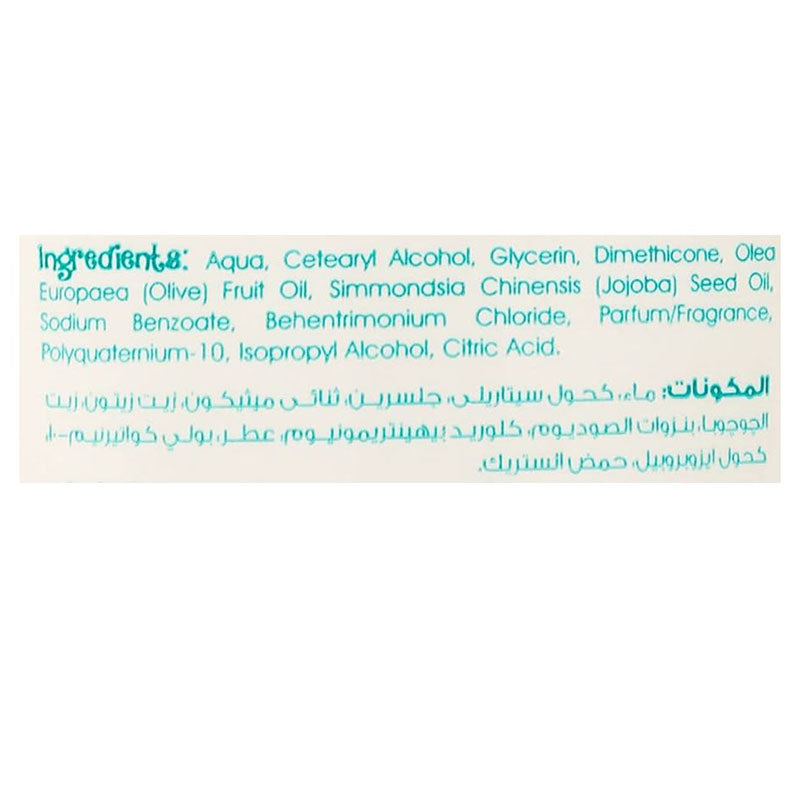 Ingredients: Aqua, Cetearyl Alcohol, Glycerin, Dimethicone, Olea
Europaea (Olive) Fruit Oil, Simmondsia Chinensis (Jojoba) Seed Oil,
Sodium Benzoate, Behentrimonium Chloride, Parfum/Fragrance,
Polyquaternium-10, Isopropyl Alcohol, Citric Acid.
المكونات: ماء، كحول سيتاريلي، جلسرين، ثنائي ميثيكون، زيت زيتون، زيت
الجوجوبا، بنزوات الصوديوم، كلوريد بيهينتريمونيوم، عطر، بولي كواتيرنيم-١٠،
كحول ايزوبروبيل، حمض انستريك.